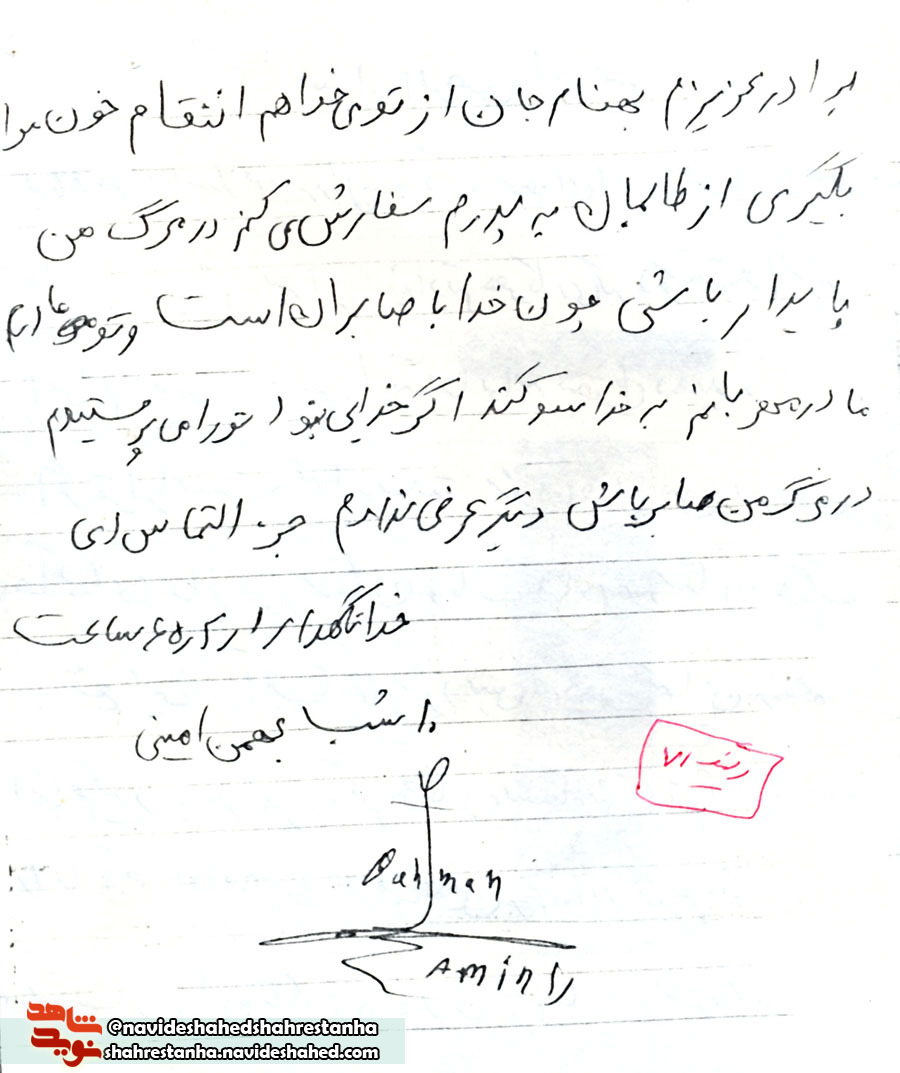 برادر عزیزم بهنام جان از تو می خواهم انتقام خون مرا
بگیری از ظالمان به پدرم سفارش می کنم در مرگ من
پایدار باشی چون خدا با صابران است و تو
مادر مهربانم به خدا سوگند اگر خدایی نبود تو را می پرستیدم
در مرگ من صابر باش دیگر عرضی ندارم جز التماس دعای
خدانگهدار ساعت
۱۰ شب بهمن امینی
Bahman
Amini
شاهد
نوید
@navideshahedshahrestanha
shahrestanha.navideshahed.com